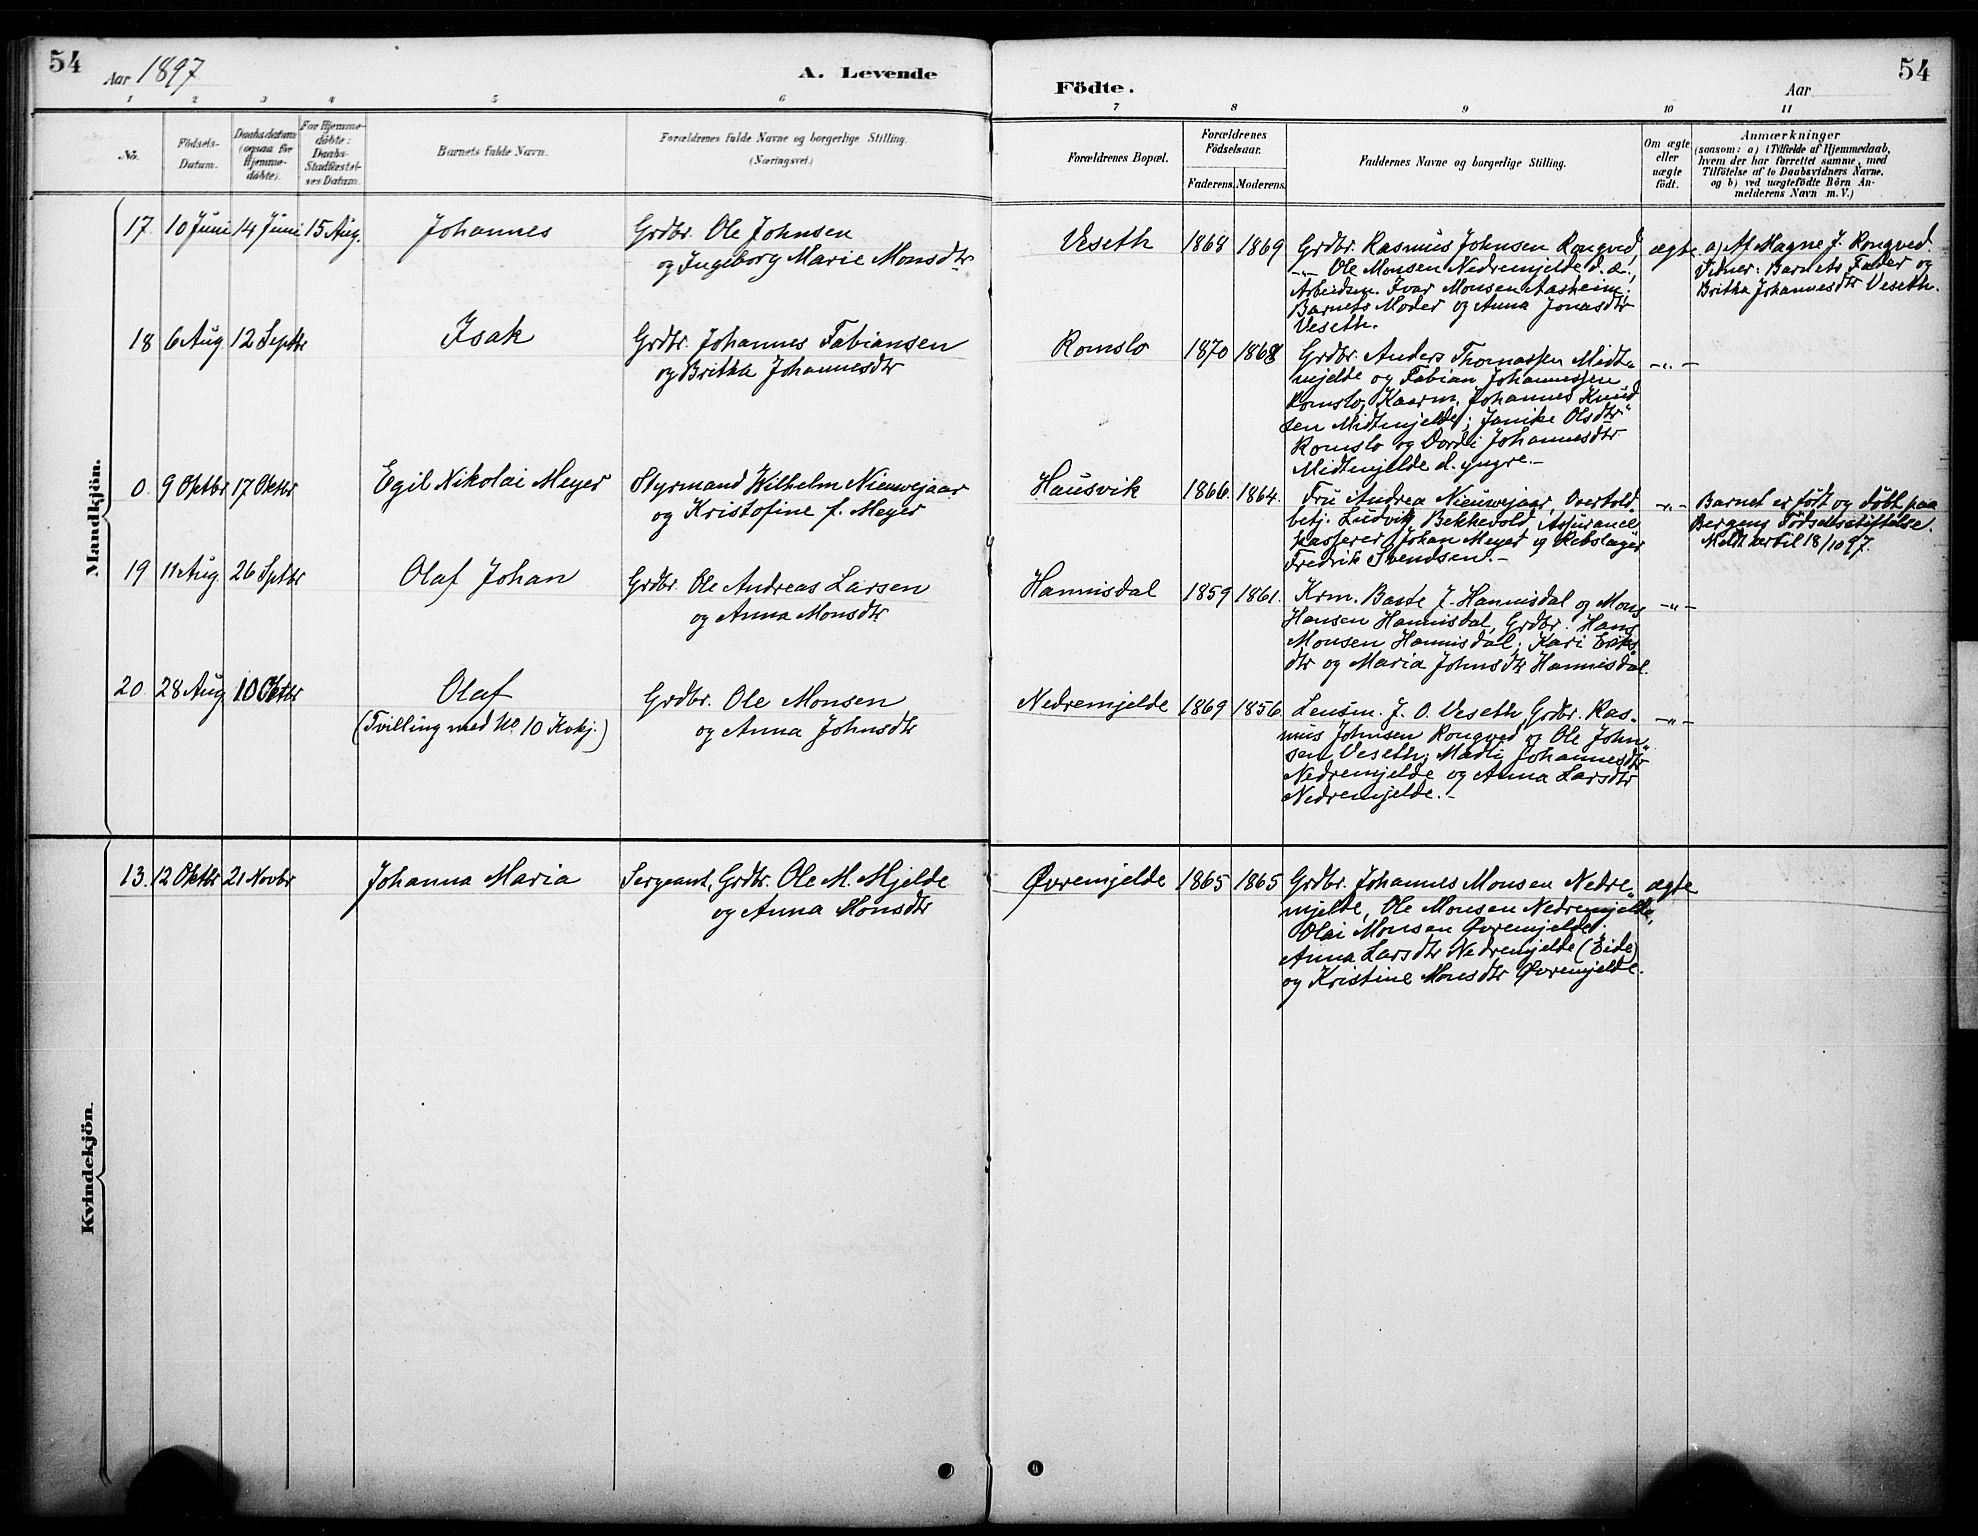 54
Aar 1897
A. Levende
Födte.
Aar
54
1 2 3 4 5 6 7 8 9 10 11
No.
Födsels-
Datum.
Daabsdatum
(ogsaa for
Hjemme-
døbte).
For Hjemme-
døbte:
Daabs-
Stadfæstel-
ses Datum.
Barnets fulde Navn.
Forældrenes fulde Navne og borgerlige Stilling.
(Næringsvei.)
Forældrenes Bopæl.
Forældrenes
Födselsaar.
Faderens. Moderens.
Faddernes Navne og borgerlige Stilling.
Om ægte
eller
uægte
födt.
Anmærkninger
(saasom: a) i Tilfælde af Hjemmedaab,
hvem der har forrettet samme, med
Tilföielse af to Daabsvidners Navne.
og b) ved uægtefödte Börn An-
melderens Navn m. V.)
Mandkjön.
17. 10 Juni 14 Juni 15 Aug. Johannes
Grdbr. Ole Johnsen
og Ingeborg Marie Monsdtr
Veseth 1868 1869
Grdbr. Rasmus Johnsen Rongved,
-"- Ole Monsen Nedremjelde d. æ.,
Arbeidsm. Ivar Monsen Aasheim;
Barnets Moder og Anna Jonasdtr
Veseth.
ægte
a) Af Magne J. Rongved.
Vidner: Barnets Fader og
Britha Johannesdtr Veseth.
18 6 Aug 12 Septbr Isak
Grdbr. Johannes Fabiansen
og Britha Johannesdtr
Romslo 1870 1868
Grdbr. Anders Thomassen Midt-
mjelde og Fabian Johannessen
Romslo, Kaarm. Johannes Knud-
sen Midtmjelde; Janike Olsdtr
Romslo og Dordi Johannesdtr
Midtmjelde d. yngre.-
-"-
0. 9 Oktbr 17 Oktbr Egil Nikolai Meyer
Styrmand Wilhelm Nieuwejaar
og Kristofine f. Meyer
Hausvik 1866. 1864.
Fru Andrea Nieuwejaar, Overtold-
betj. Ludvig Bekkevold, Assurance
kasserer Johan Meyer og Rebslager
Fredrik Svendsen.-
-"-
Barnet er født og døbt paa
Bergens Fødselsstiftelse.
Meldt hertil 18/10 97.
19 11 Aug. 26 Septbr Olaf Johan
Grdbr. Ole Andreas Larsen
og Anna Monsdtr
Hannisdal 1859 1861.
Krm. Baste J. Hannisdal og Mons
Hansen Hannisdal, Grdbr. Hans
Monsen Hannisdal; Kari Eriks
dtr og Maria Johnsdtr Hannisdal.
-"-
20. 28 Aug 10 Oktbr Olaf
(Tvilling med No 10 Kvkj.)
Grdbr. Ole Monsen
og Anna Johnsdtr
Nedremjelde 1869 1856
Lensm. J. O. Veseth, Grdbr. Ras-
mus Johnsen Rongved og Ole John-
sen Veseth; Madli Johannesdtr
Nedremjelde og Anna Larsdtr
Nedremjelde.-
-"-
Kvindekjön.
13. 12 Oktbr 21 Novbr Johanna Maria
Sergeant, Grdbr. Ole M. Mjelde
og Anna Monsdtr
Øvremjelde 1865 1865
Grdbr. Johannes Monsen Nedre-
mjelde, Ole Monsen Nedremjelde,
Olai Monsen Øvremjelde;
Anna Larsdtr Nedremjelde (Eide)
og Kristine Monsdtr Øvremjelde.
ægte